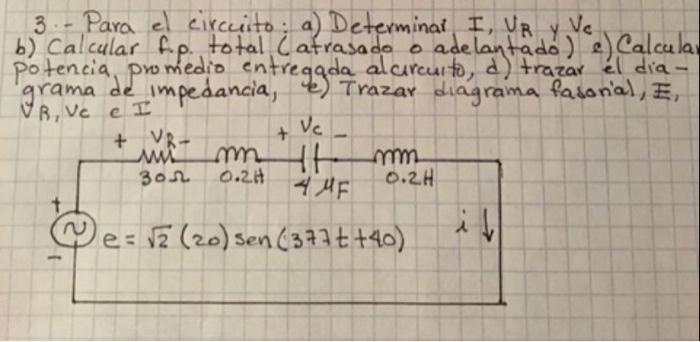 3.- Para el circuito: a) Determinar I, VR y Vc
b) Calcular f.p. total (atrasado o adelantado) c) Calcular
potencia promedio entregada al circuito, d) trazar el dia-
grama de impedancia, e) Trazar diagrama fasorial, E,
VR, Vc e I
+ VR - + Vc -
30Ω 0.2H 4 μF 0.2H
+
e = √2 (20) sen (377t + 40) i ↓
-